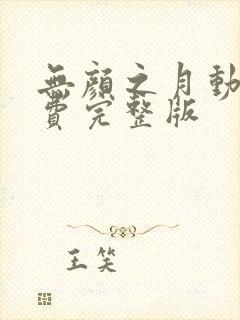 無顏之月動
費完整版
王笑